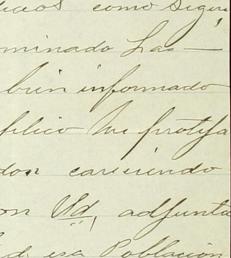 como sigu
minado has —
bien informado
me protija
dor careciendo
on Vd, adjunta
d esa Población